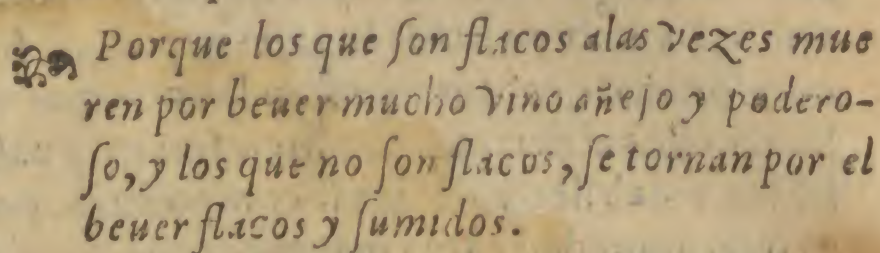 Porque los que ſon flacos alas vezes mue
ren por beuer mucho vino añejo y podero-
ſo, y los que no ſon flacos, ſe tornan por el
beuer flacos y ſumidos.